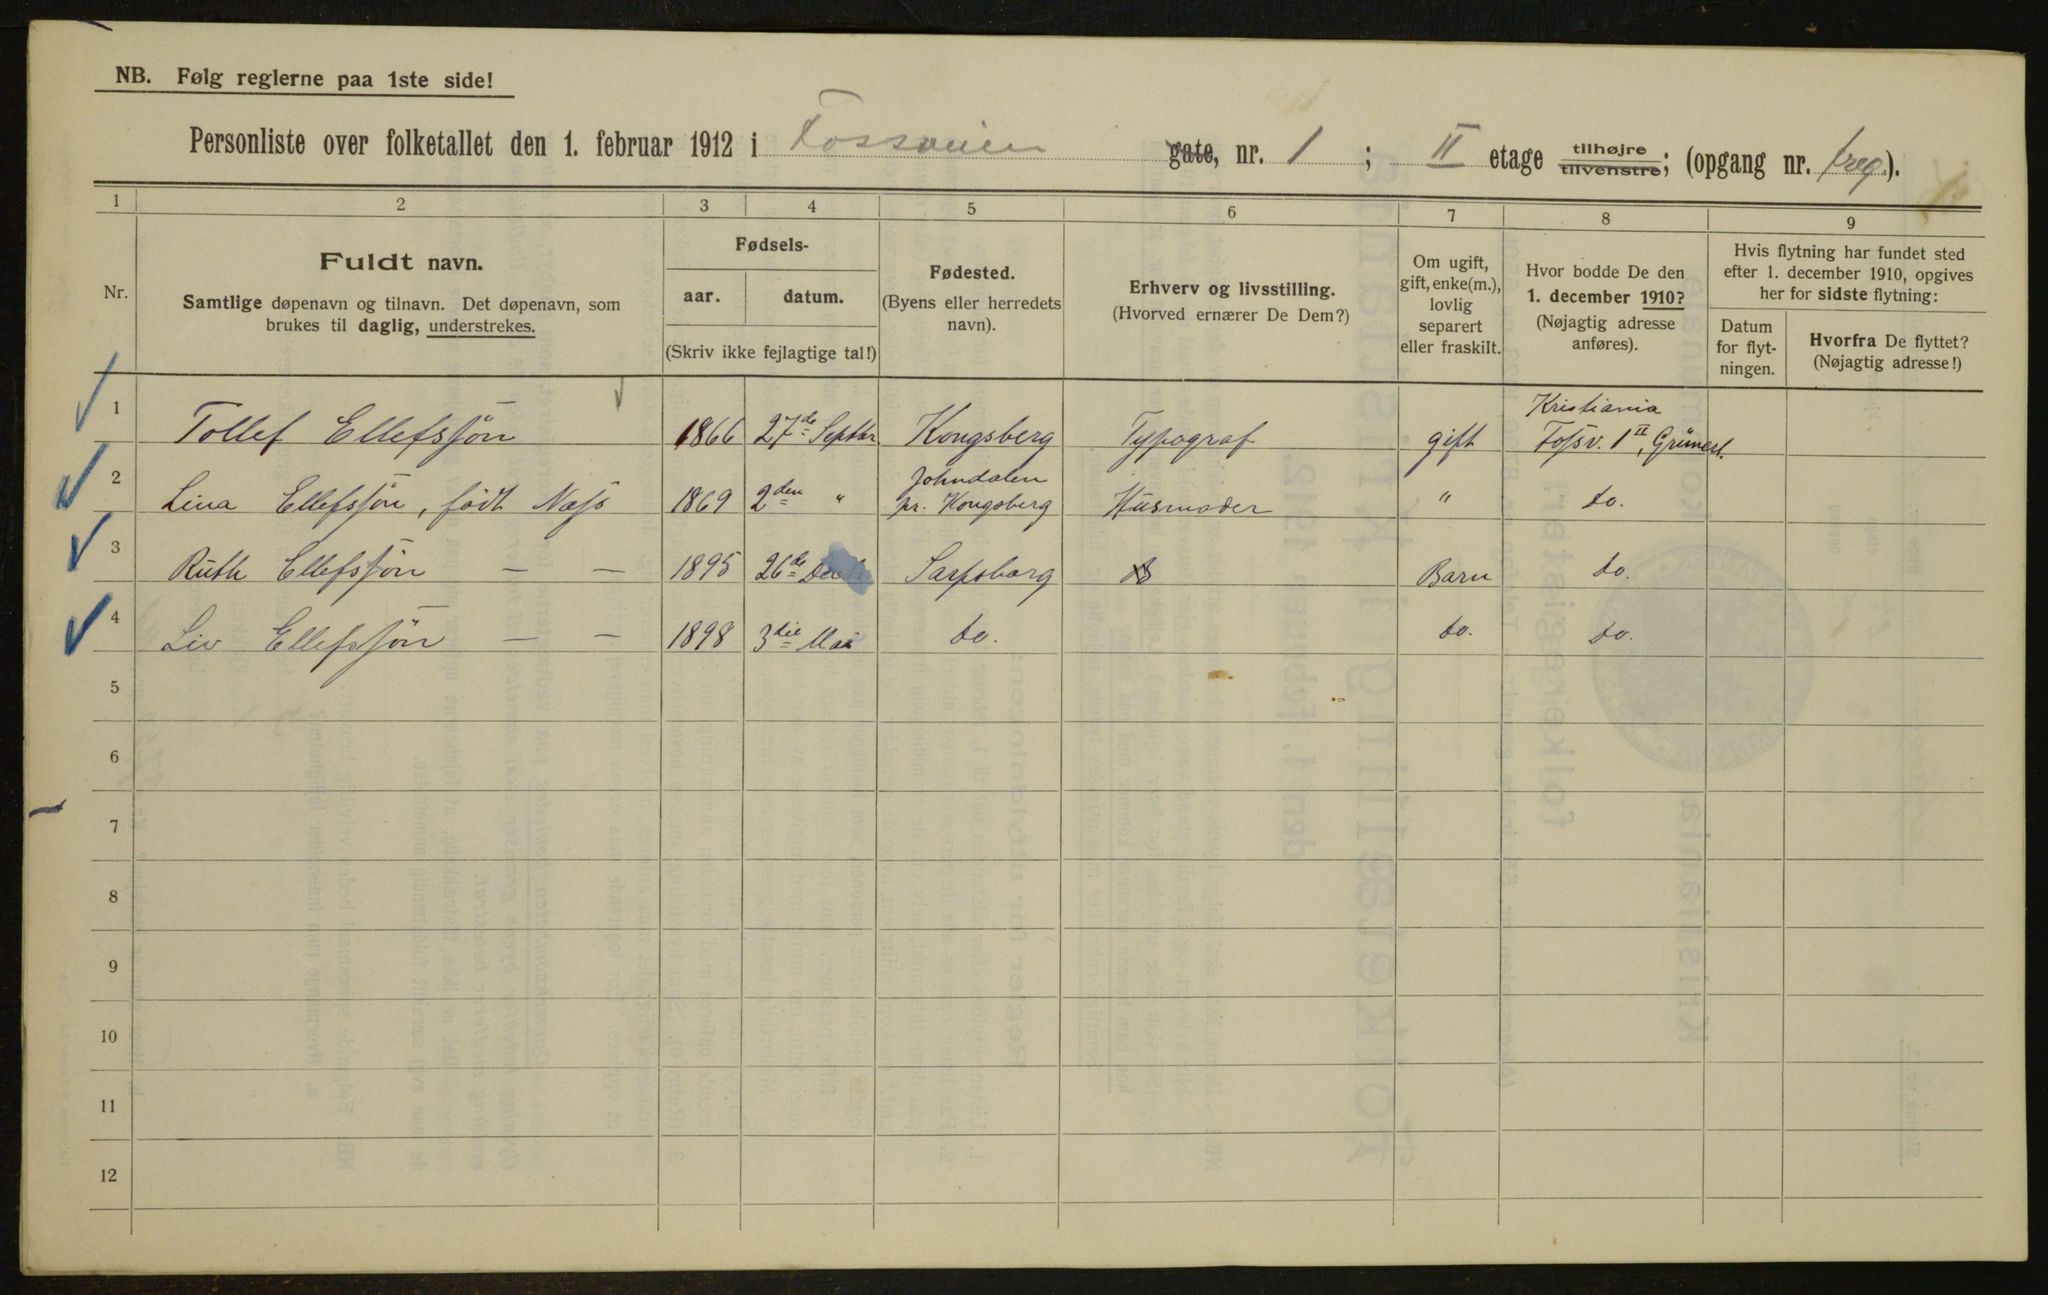 NB. Følg reglerne paa 1ste side!
Personliste over folketallet den 1. februar 1912 i Fossveien gate, nr. 1 ; II etage tilhøjre tilvenstre; (opgang nr. ).
1 2 3 4 5 6 7 8 9
Nr.
Fuldt navn.
Samtlige døpenavn og tilnavn. Det døpenavn, som
brukes til daglig, understrekes.
Fødsels-
aar. datum.
(Skriv ikke fejlagtige tal!)
Fødested.
(Byens eller herredets
navn).
Erhverv og livsstilling.
(Hvorved ernærer De Dem?)
Om ugift,
gift, enke(m.),
lovlig
separert
eller fraskilt.
Hvor bodde De den
1. december 1910?
(Nøjagtig adresse
anføres).
Hvis flytning har fundet sted
efter 1. december 1910, opgives
her for sidste flytning:
Datum
for flyt-
ningen.
Hvorfra De flyttet?
(Nøjagtig adresse!)
1 Tollef Ellefssøn 1866 27de Septbr Kongsberg Typograf gift Kristiania
Fossv. 1 II, Grünerl.
2 Lina Ellefssøn, født Næss 1869 2den " Johndalen
pr. Kongsberg Husmoder " do.
3 Ruth Ellefssøn — — 1895 26de Sarpsborg Barn do.
4 Liv Ellefssøn — — 1898 3die Mai do. do. do.
5
6
7
8
9
10
11
12